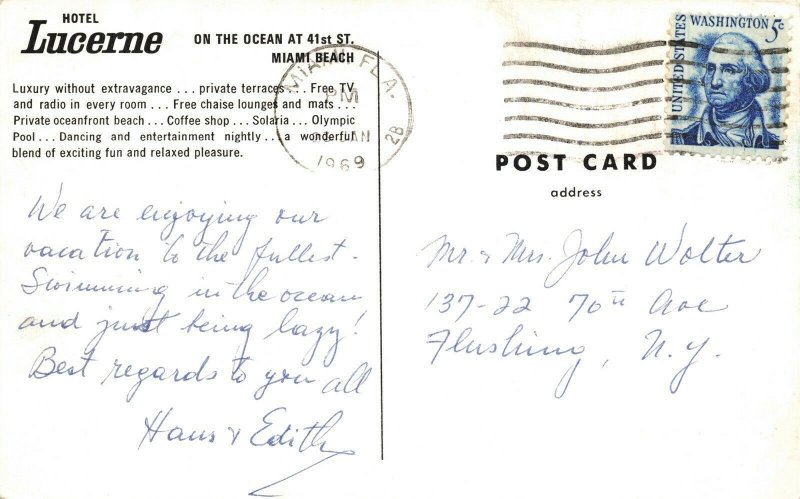 HOTEL
Lucerne
ON THE OCEAN AT 41st ST.
MIAMI BEACH
Luxury without extravagance ... private terraces ... Free TV
and radio in every room ... Free chaise lounges and mats ...
Private oceanfront beach ... Coffee shop ... Solaria ... Olympic
Pool ... Dancing and entertainment nightly ... a wonderful
blend of exciting fun and relaxed pleasure.
MIAMI, FLA.
PM
JAN
1969
2B
UNITED STATES
WASHINGTON 5c
POST CARD
address
We are enjoying our
vacation to the fullest.
Swimming in the ocean
and just being lazy!
Best regards to you all
Hans & Edith
Mr. & Mrs. John Wolter
137-22 70th Ave
Flushing, N.Y.